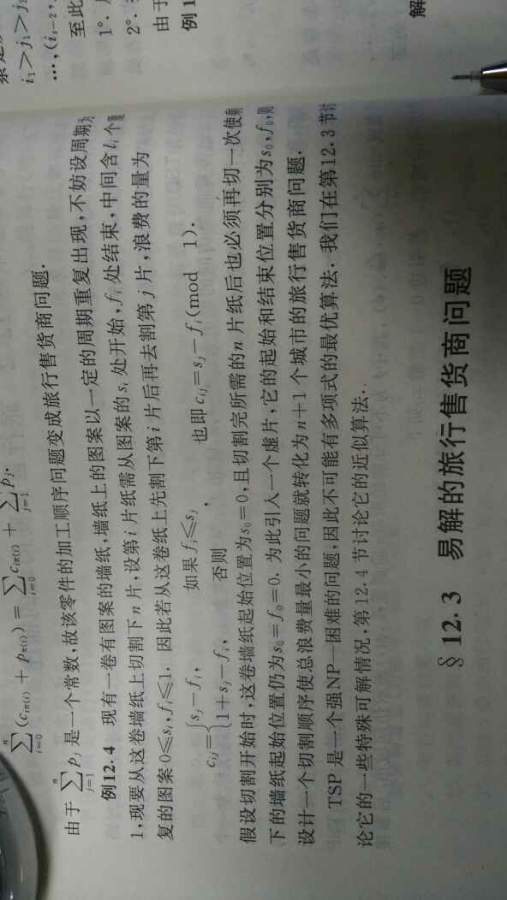 i₁>j₁>j
…,(iᵣ₋₂,
至此
1°.
2°.
由于
例1
解
∑ⁿᵢ₌₀(cᵢπ₍ᵢ₎ + pπ₍ᵢ₎) = ∑ⁿᵢ₌₀cᵢπ₍ᵢ₎ + ∑ⁿⱼ₌₁pⱼ.
由于∑ⁿⱼ₌₁pⱼ是一个常数,故该零件的加工顺序问题变成旅行售货商问题.
例12.4 现有一卷有图案的墙纸,墙纸上的图案以一定的周期重复出现,不妨设周期为
1,现要从这卷墙纸上切割下n片,设第i片纸需从图案的sᵢ处开始,fᵢ处结束,中间含lᵢ个
复的图案0≤sᵢ,fᵢ≤1. 因此若从这卷纸上先割下第i片后再去割第j片,浪费的量为
cᵢⱼ={sⱼ-fᵢ, 如果fᵢ≤sⱼ
1+sⱼ-fᵢ, 否则, 也即cᵢⱼ=sⱼ-fᵢ(mod 1).
假设切割开始时,这卷墙纸起始位置为s₀=0,且切割完所需的n片纸后也必须再切一次使
下的墙纸起始位置仍为s₀=f₀=0. 为此引入一个虚片,它的起始和结束位置分别为s₀,f₀,则
设计一个切割顺序使总浪费量最小的问题就转化为n+1个城市的旅行售货商问题.
TSP是一个强NP—困难的问题,因此不可能有多项式的最优算法. 我们在第12.3节讨
论它的一些特殊可解情况,第12.4节讨论它的近似算法.
§12.3 易解的旅行售货商问题